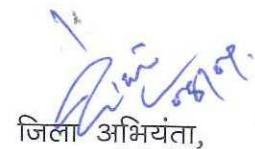 जिला अभियंता,